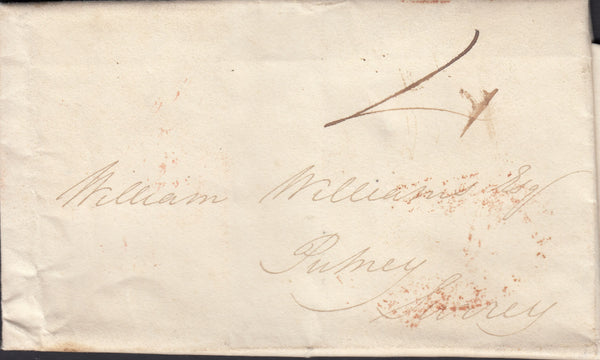 4
William Williams Esq
Putney
Surrey